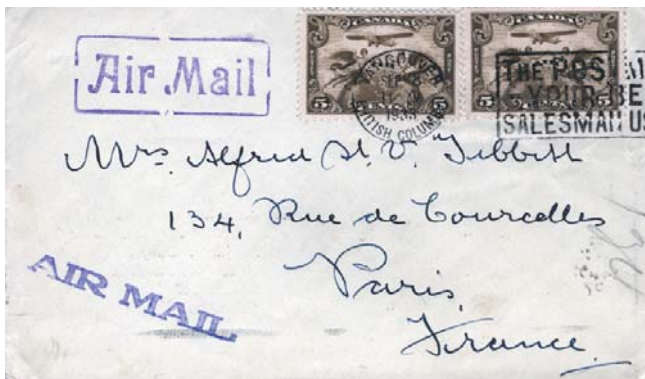 Air Mail
CANADA
5 5
CANADA
5 5
VANCOUVER
SEP
BRITISH COLUMB
THE POS
YOUR BE
SALESMAN US
Mrs. Alfred St. V. Tibbitt
134, Rue de Courcelles
Paris,
France.
AIR MAIL